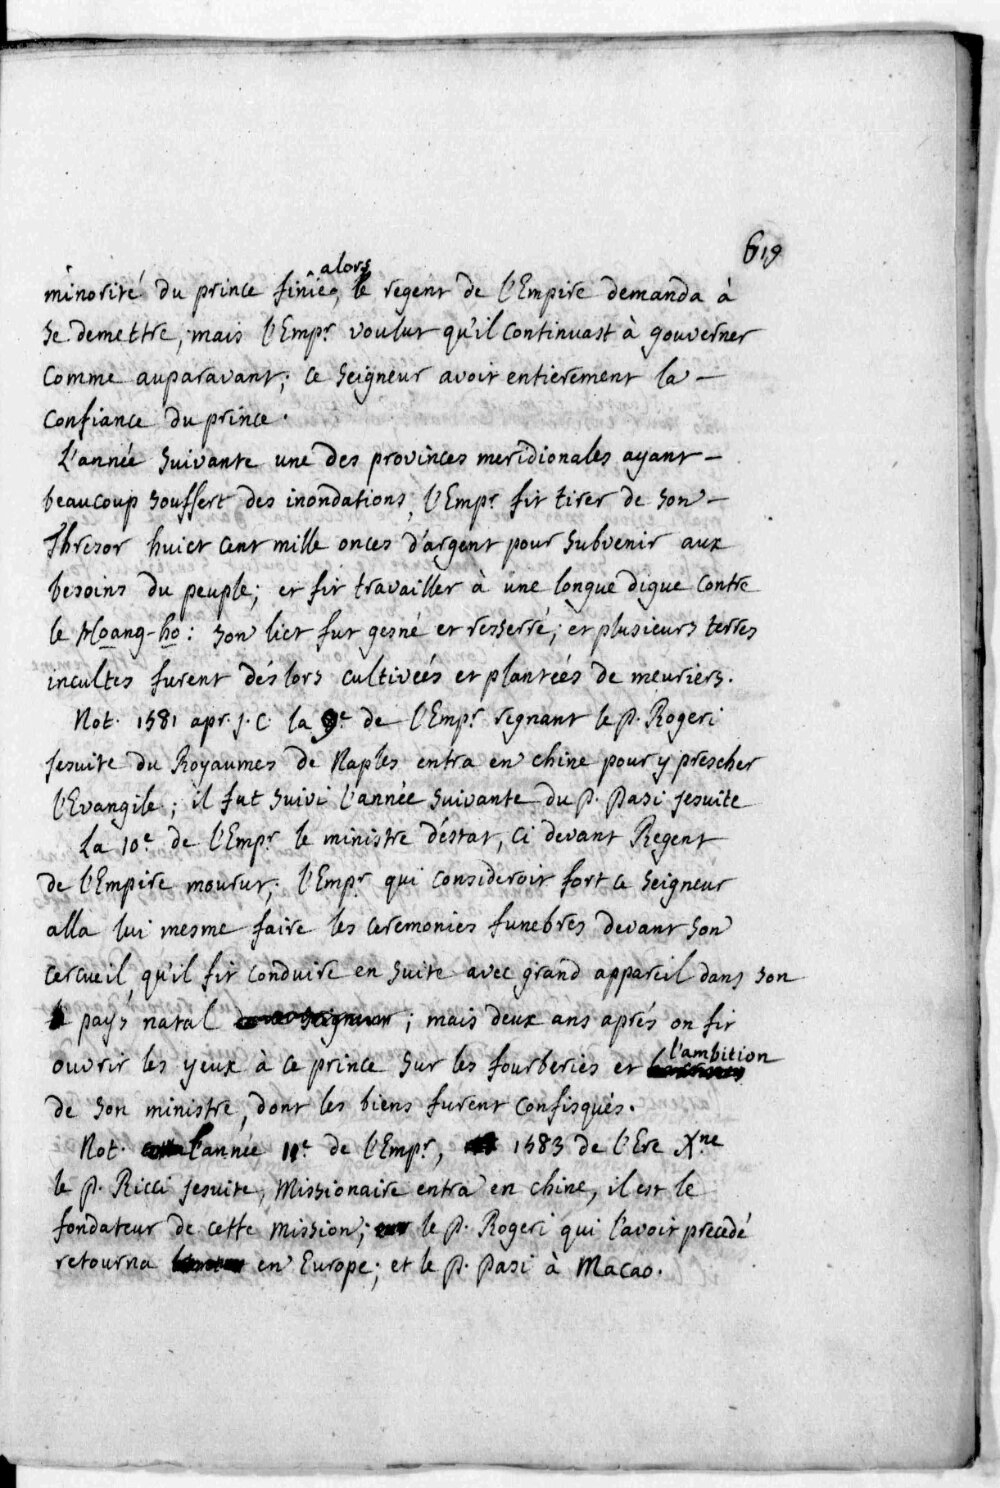 619
alors
minorité du prince finiee, le regent de l'Empire demanda à
se demettre, mais l'Empr. voulut qu'il continuast à gouverner
comme auparavant; ce seigneur avoit entierement la –
confiance du prince.
L'année suivante une des provinces meridionales ayant –
beaucoup souffert des inondations, l'Empr. fit tirer de son –
Thresor huict cent mille onces d'argent pour subvenir aux
besoins du peuple; et fit travailler à une longue digue contre
le Hoang-ho: son lict fut gesné et resserré; et plusieurs terres
incultes furent dés lors cultivées et plantées de meuriers.
Not. 1581 apr. J. C. la 9e de l'Empr. regnant le p. Rogeri
Jesuite du Royaumes de Naples entra en chine pour y prescher
l'Evangile; il fut suivi l'année suivante du p. Pasi jesuite
La 10e de l'Empr. le ministre d'éstat, ci devant Regent
de l'Empire mourut; l'Empr. qui consideroit fort ce seigneur
alla lui mesme faire les ceremonies funebres devant son
cercueil, qu'il fit conduire en suite avec grand appareil dans son
pays natal; mais deux ans aprés on fit
l'ambition
ouvrir les yeux à ce prince sur les fourberies et
de son ministre, dont les biens furent confisqués.
Not. l'année 11e de l'Empr., 1583 de l'Ere Xne
le p. Ricci jesuite, Missionaire entra en chine, il est le
fondateur de cette mission; le p. Rogeri qui l'avoit precedé
retourna en Europe; et le p. Pasi à Macao.